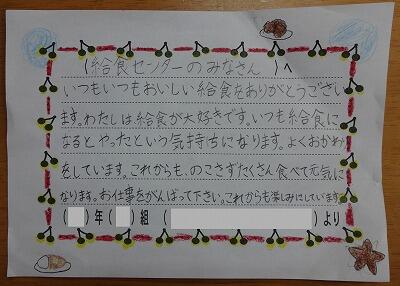 (給食センターのみなさん)へ
いつもいつもおいしい給食をありがとうござい
ます。わたしは給食が大好きです。いつも給食に
なるとやったという気持ちになります。よくおかわ
をしています。これからも、のこさずたくさん食べて元気に
なります。お仕事をがんばって下さい。これからも楽しみにしています。
( )年( )組( )より